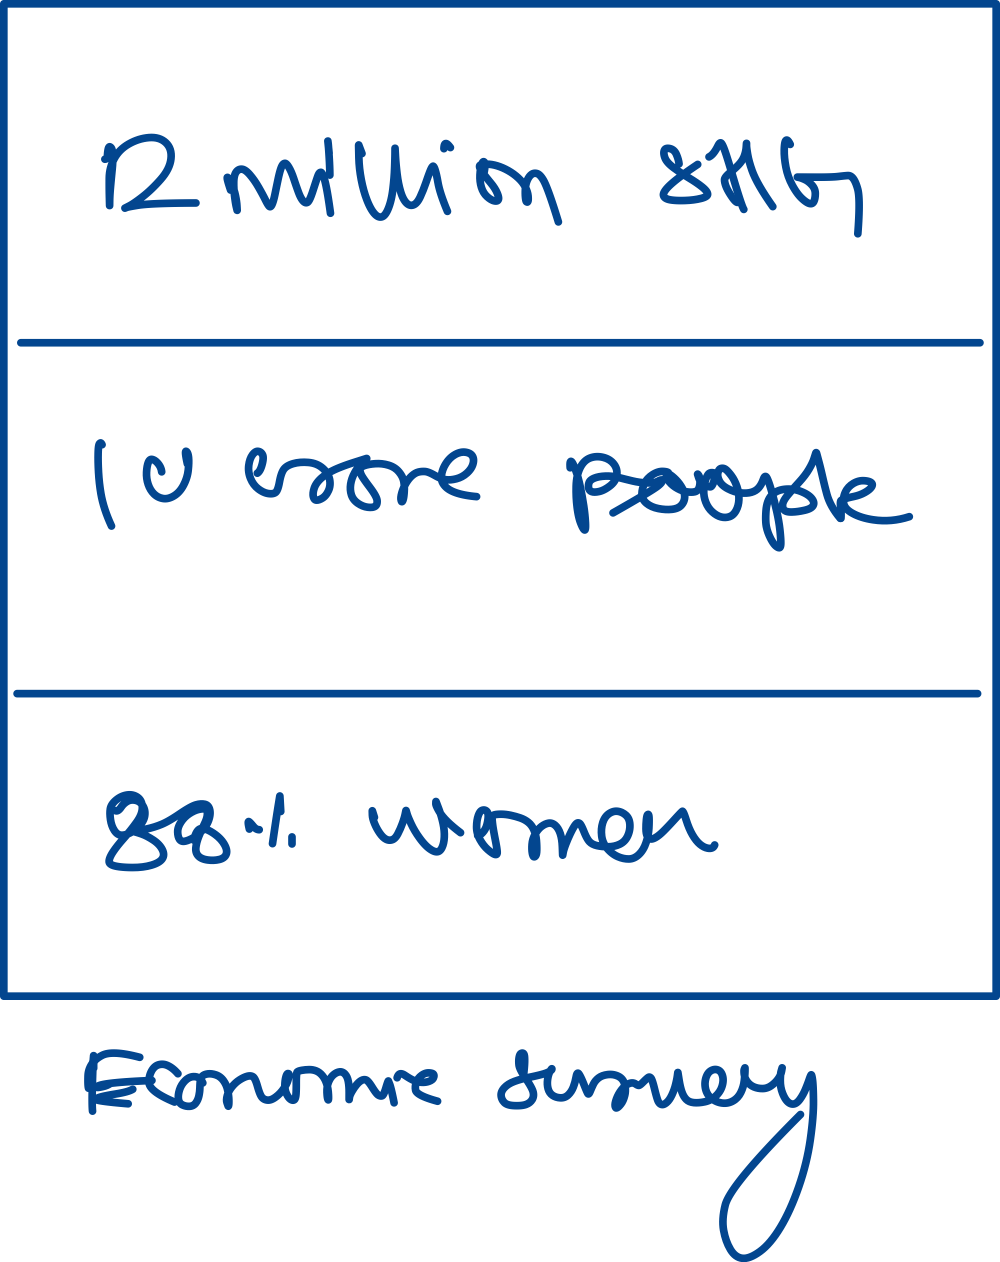 12 million SHG
10 crore people
88% women
Economic Survey